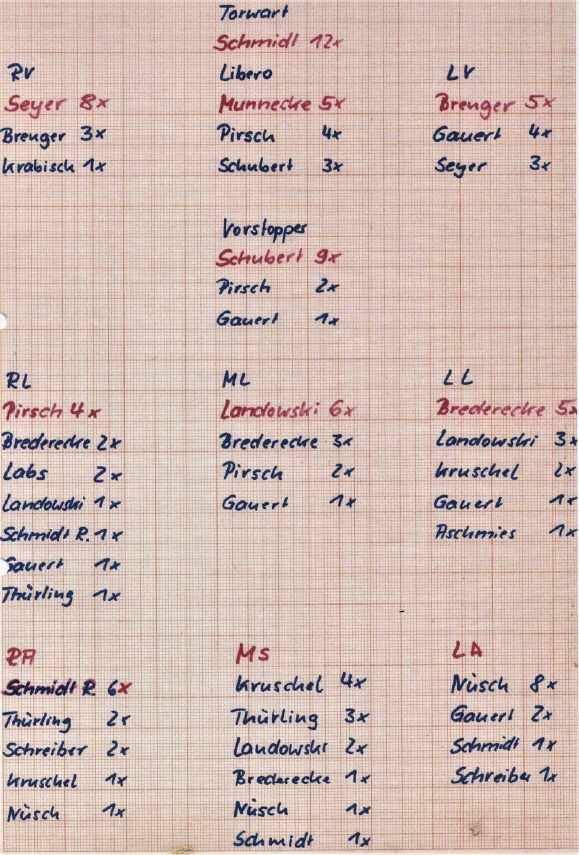 Torwart
Schmidt 12x
RV
Seyer 8x
Brenger 3x
Krabisch 1x
Libero
Munnecke 5x
Pirsch 4x
Schubert 3x
LV
Brenger 5x
Gauert 4x
Seyer 3x
Vorstopper
Schubert 9x
Pirsch 2x
Gauert 1x
RL
Pirsch 4x
Brederecke 2x
Labs 2x
Landowski 1x
Schmidt R. 1x
Gauert 1x
Thürling 1x
ML
Landowski 6x
Brederecke 3x
Pirsch 2x
Gauert 1x
LL
Brederecke 5x
Landowski 3x
Kruschel 2x
Gauert 1x
Aschmies 1x
RA
Schmidt R. 6x
Thürling 2x
Schreiber 2x
Kruschel 1x
Nüsch 1x
MS
Kruschel 4x
Thürling 3x
Landowski 2x
Brederecke 1x
Nüsch 1x
Schmidt 1x
LA
Nüsch 8x
Gauert 2x
Schmidt 1x
Schreiber 1x